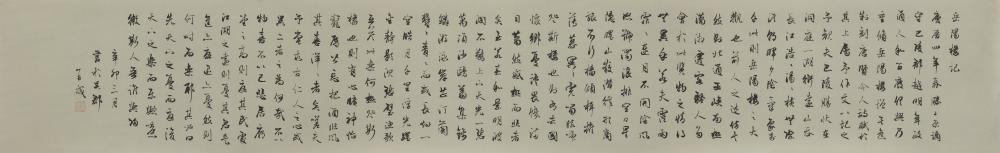 岳陽樓記
慶曆四年春滕子京謫
守巴陵郡越明年政
通人和百廢俱興乃
重修岳陽樓增其舊
制刻唐賢今人詩賦於
其上屬予作文以記之
予觀夫巴陵勝狀在
洞庭一湖銜遠山吞
長江浩浩湯湯橫無際
涯朝暉夕陰氣象萬
千此則岳陽樓之大
觀也前人之述備矣
然則北通巫峽南極
瀟湘遷客騷人多
會於此覽物之情得
無異乎若夫霪雨
霏霏連月不開陰風
怒號濁浪排空日星
隱曜山岳潛形商
旅不行檣傾楫摧
薄暮冥冥虎嘯猿啼
登斯樓也則有去國
懷鄉憂讒畏譏滿
目蕭然感極而悲者
矣至若春和景明波
瀾不驚上下天光一碧
萬頃沙鷗翔集錦
鱗游泳岸芷汀蘭
郁郁青青而或長煙一
空皓月千里浮光躍
金靜影沉璧漁歌
互答此樂何極登斯
樓也則有心曠神怡
寵辱偕忘把酒臨風
其喜洋洋者矣嗟夫
予嘗求古仁人之心或
異二者之為何哉不以
物喜不以己悲居廟
堂之高則憂其民處
江湖之遠則憂其君是
進亦憂退亦憂然則
何時而樂耶其必曰
先天下之憂而憂後
天下之樂而樂歟噫
微斯人吾誰與歸
辛卯三月
書於京都